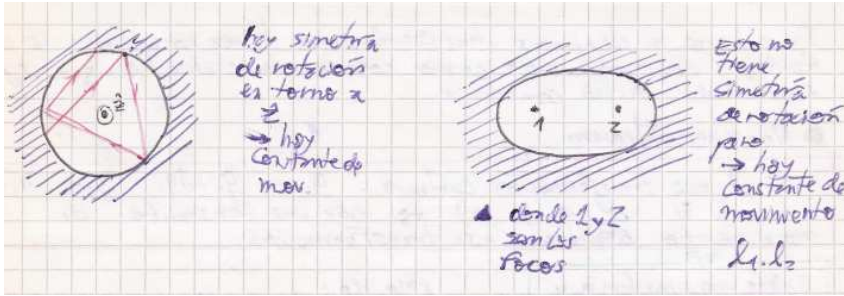 hay simetría
de rotación
en torno a
ẑ
→ hay
Constante de
mov.
ẑ
1
2
▲ donde 1 y 2
son los
focos
Esto no
tiene
simetría
de rotación
pero
→ hay
Constante de
movimiento
l₁·l₂